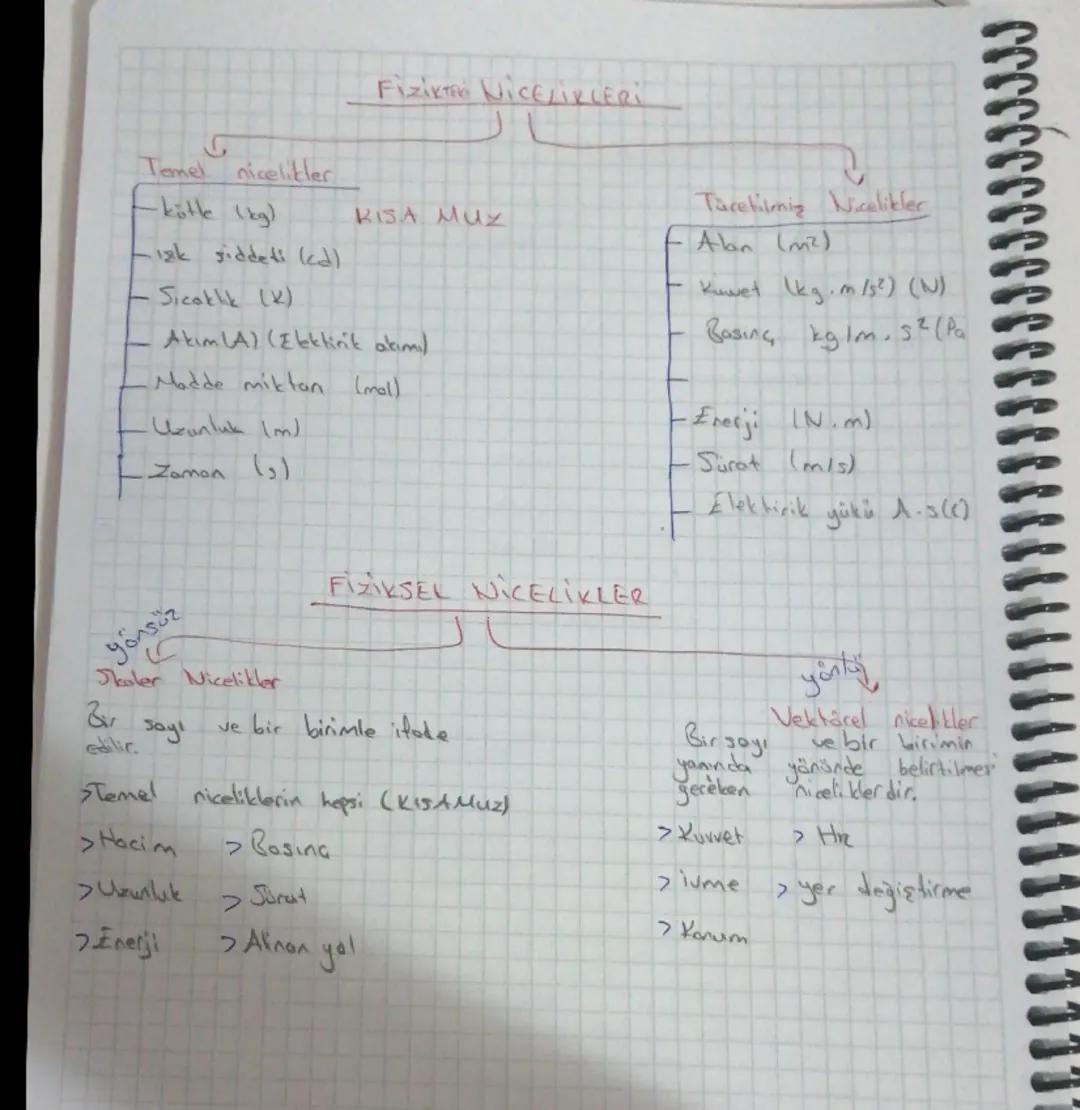 FiZİKTEKİ NİCELİKLERİ
Temel nicelikler
kütle (kg)
KISA MUZ
ışık şiddeti (cd)
Sıcaklık (K)
Akım (A) (Elektirik akımı)
Madde miktarı (mol)
Uzunluk (m)
Zaman (s)
Türetilmiş Nicelikler
Alan (m²)
Kuvvet (kg.m/s²) (N)
Basınç kg/m.s² (Pa
Enerji (N.m)
Sürat (m/s)
Elektirik yükü A.s(C)
FİZİKSEL NİCELİKLER
yönsüz
Skaler Nicelikler
Bir sayı ve bir birimle ifade
edilir.
>Temel niceliklerin hepsi (KISAMUZ)
>Hacim >Basınç
>Uzunluk >Sürat
>Enerji >Alınan yol
yönlü
Vektörel nicelikler
Bir sayı ve bir birimin
yanında yönünde belirtilmesi
gereken niceliklerdir.
>Kuvvet >Hız
>ivme >yer değiştirme
>Konum